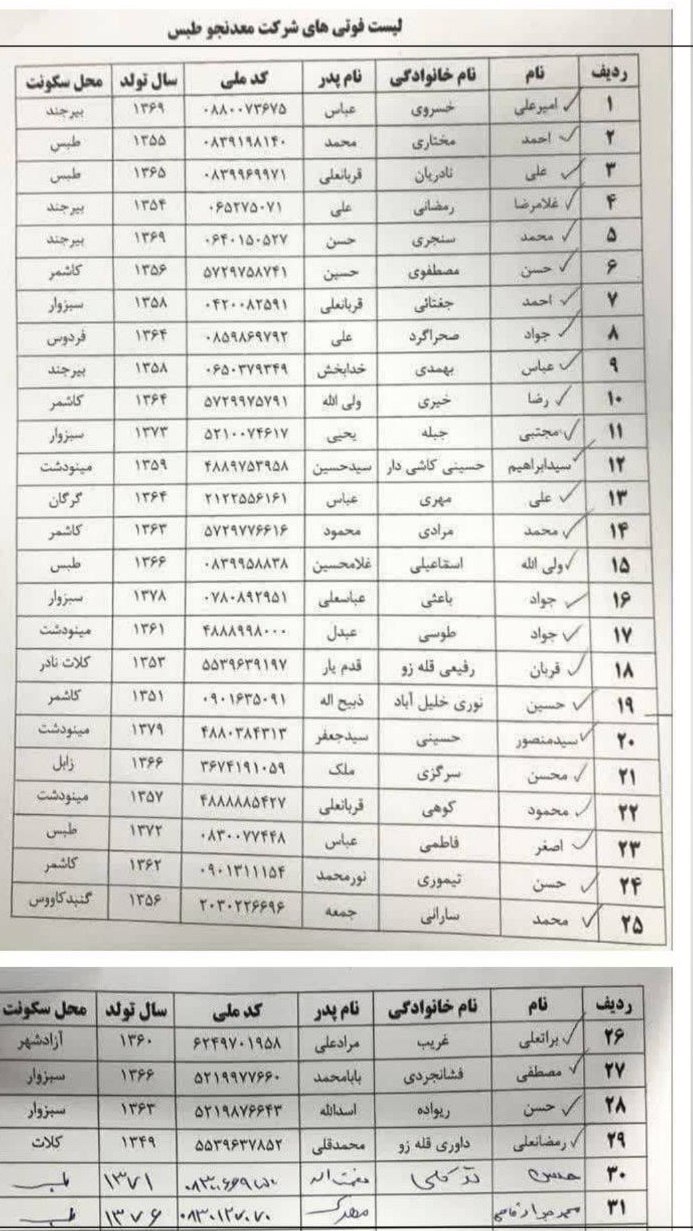 لیست فوتی های شرکت معدنجو طبس
ردیف نام نام خانوادگی نام پدر کد ملی سال تولد محل سکونت
۱ امیرعلی خسروی عباس ۰۸۸۰۰۷۳۶۷۵ ۱۳۶۹ بیرجند
۲ احمد مختاری محمد ۰۸۳۹۱۹۸۱۴۰ ۱۳۵۵ طبس
۳ علی نادریان قربانعلی ۰۸۳۹۹۶۹۹۷۱ ۱۳۶۵ طبس
۴ غلامرضا رمضانی علی ۰۶۵۲۷۵۰۷۱ ۱۳۵۴ بیرجند
۵ محمد سنجری حسن ۰۶۴۰۱۵۰۵۲۷ ۱۳۶۹ بیرجند
۶ حسن مصطفوی حسین ۵۷۲۹۷۵۸۷۴۱ ۱۳۵۶ کاشمر
۷ احمد جغتائی قربانعلی ۰۴۲۰۰۸۲۵۹۱ ۱۳۵۸ سبزوار
۸ جواد صحراگرد علی ۰۸۵۹۸۶۹۷۹۲ ۱۳۶۴ فردوس
۹ عباس بهمدی خدابخش ۰۶۵۰۳۷۹۳۴۹ ۱۳۵۸ بیرجند
۱۰ رضا خیری ولی الله ۵۷۲۹۹۷۵۷۹۱ ۱۳۶۴ کاشمر
۱۱ مجتبی جبله یحیی ۵۲۱۰۰۷۴۶۱۷ ۱۳۷۳ سبزوار
۱۲ سیدابراهیم حسینی کاشی دار سیدحسین ۴۸۸۹۷۵۳۹۵۸ ۱۳۵۹ مینودشت
۱۳ علی مهری عباس ۲۱۲۲۵۵۶۱۶۱ ۱۳۶۴ گرگان
۱۴ محمد مرادی محمود ۵۷۲۹۷۷۶۶۱۶ ۱۳۶۳ کاشمر
۱۵ ولی الله اسماعیلی غلامحسین ۰۸۳۹۹۵۸۸۳۸ ۱۳۶۶ طبس
۱۶ جواد باعثی عباسعلی ۰۷۸۰۸۹۲۹۵۱ ۱۳۷۸ سبزوار
۱۷ جواد طوسی عبدل ۴۸۸۸۹۹۸۰۰۰ ۱۳۶۱ مینودشت
۱۸ قربان رفیعی قله زو قدم یار ۵۵۳۹۶۳۹۱۹۷ ۱۳۵۳ کلات نادر
۱۹ حسین نوری خلیل آباد ذبیح اله ۰۹۰۱۶۳۵۰۹۱ ۱۳۵۱ کاشمر
۲۰ سیدمنصور حسینی سیدجعفر ۴۸۸۰۳۸۴۳۱۳ ۱۳۷۹ مینودشت
۲۱ محسن سرگزی ملک ۳۶۷۴۱۹۱۰۵۹ ۱۳۶۶ زابل
۲۲ محمود کوهی قربانعلی ۴۸۸۸۸۸۵۴۲۷ ۱۳۵۷ مینودشت
۲۳ اصغر فاطمی عباس ۰۸۳۰۰۷۷۴۴۸ ۱۳۷۲ طبس
۲۴ حسن تیموری نورمحمد ۰۹۰۱۳۱۱۱۵۴ ۱۳۶۲ کاشمر
۲۵ محمد سارانی جمعه ۲۰۳۰۲۲۶۶۹۶ ۱۳۵۶ گنبدکاووس
ردیف نام نام خانوادگی نام پدر کد ملی سال تولد محل سکونت
۲۶ براتعلی غریب مرادعلی ۶۲۴۹۷۰۱۹۵۸ ۱۳۶۰ آزادشهر
۲۷ مصطفی فشانجردی بابامحمد ۵۲۱۹۹۷۷۶۶۰ ۱۳۶۶ سبزوار
۲۸ حسن ریواده اسدالله ۵۲۱۹۸۷۶۶۴۳ ۱۳۶۳ سبزوار
۲۹ رمضانعلی داوری قله زو محمدقلی ۵۵۳۹۶۳۷۸۵۲ ۱۳۴۹ کلات
۳۰ ۱۳۷۱ طبس
۳۱ ۰۸۳۰۱۲۷۰۷۰ ۱۳۷۶ طبس